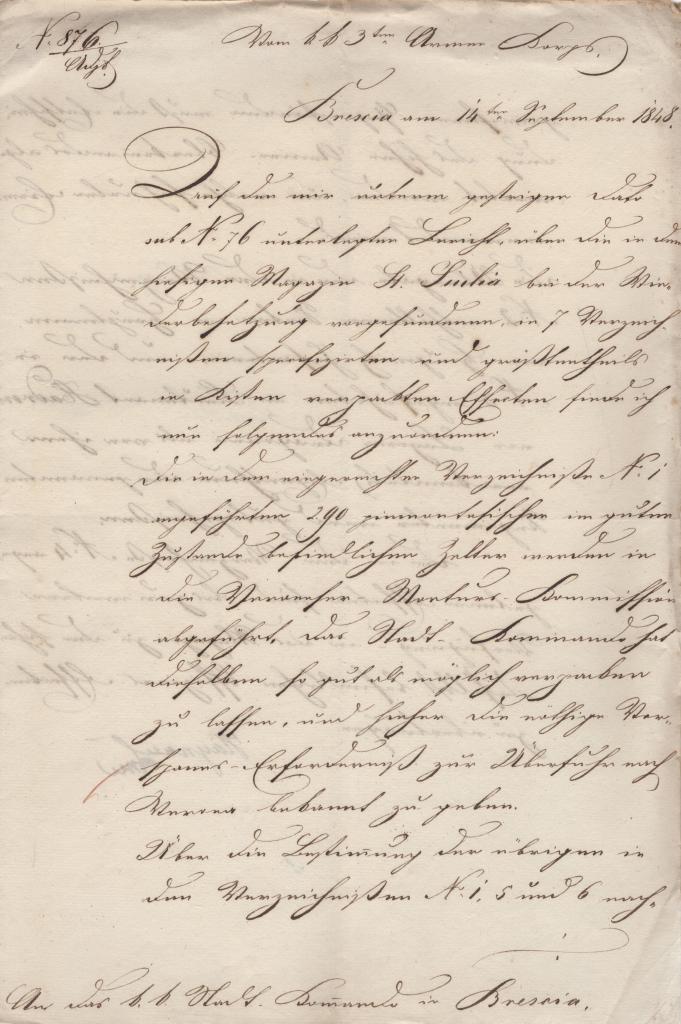 N. 876
Adjt.
Vom k k 3ten Armee Korps.
Brescia am 14ten September 1848.
Auf den mir unterm gestrigen Dato
sub No 76 unterlegten Bericht, über die in dem
hiesigen Magazin St. Giulia bei der Wie-
derbesetzung vorgefundenen, in 7 Verzeich-
nißen spezifizirten und größtentheils
in Kisten verpackten Effecten finde ich
nun folgendes anzuordnen:
Die in dem eingereichten Verzeichniße No. 1
angeführten 290 piemontesischen im guten
Zustande befindlichen Zelter werden in
die Veroneser-Monturs-Kommission
abgeführt. Das Stadt-Kommando hat
dieselben so gut als möglich verpacken
zu lassen, und hieher die nöthige Vor-
spanns-Erforderniß zur Überfuhr nach
Verona bekannt zu geben.
Über die Bestimmung der übrigen in
den Verzeichnißen No. 1, 5 und 6 nach-
An das k. k. Stadt-Kommando in Brescia.